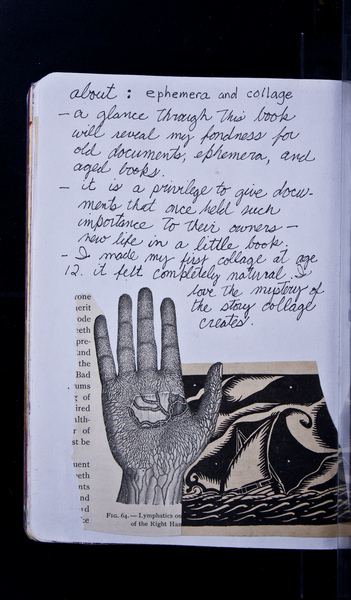 about : ephemera and collage
- a glance through this book
will reveal my fondness for
old documents, ephemera, and
aged books.
- it is a privilege to give docu-
ments that once held such
importance to their owners -
new life in a little book.
- I made my first collage at age
12. it felt completely natural. I
love the mystery of
the story collage
creates.
yone
erit
ode
eeth
pre-
und
the
Bad
ums
of
ired
alth-
r of
st be
uent
eeth
nts
and
FIG. 64.—Lymphatics on
of the Right Han